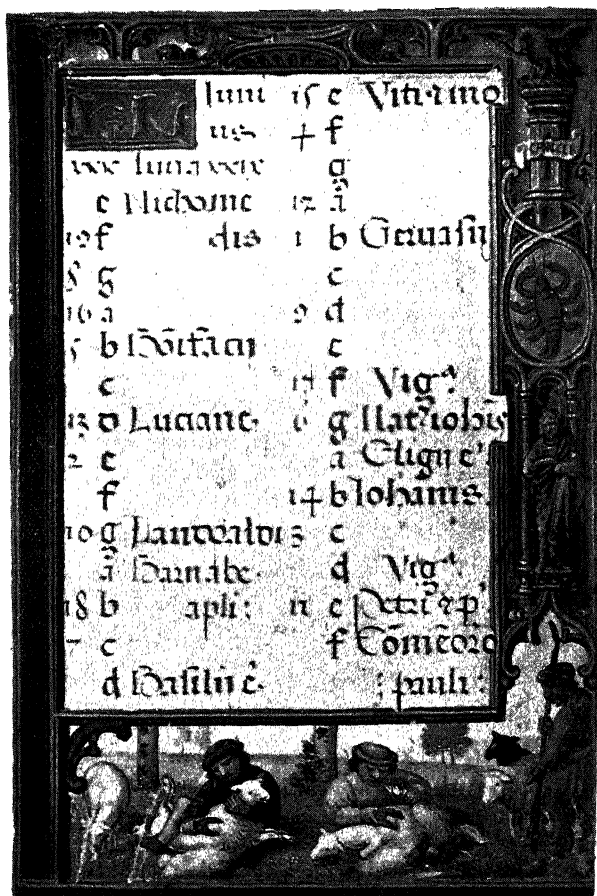 Juni
us
xxx luna xxix
e Nichome
19 f dis
8 g
16 a
5 b Bonifacii
c
13 d Luciane
2 e
f
10 g Landoaldi
a Barnabe
18 b apli:
7 c
d Basilii e'
15 e Viti
4 f
g
12 a
1 b Geruasii
c
9 d
e
17 f Vigᵃ
6 g Nat' iohis
a Eligii e'
14 b Iohannis
3 c
d Vigᵃ
11 e Petri & p'
f
: pauli :